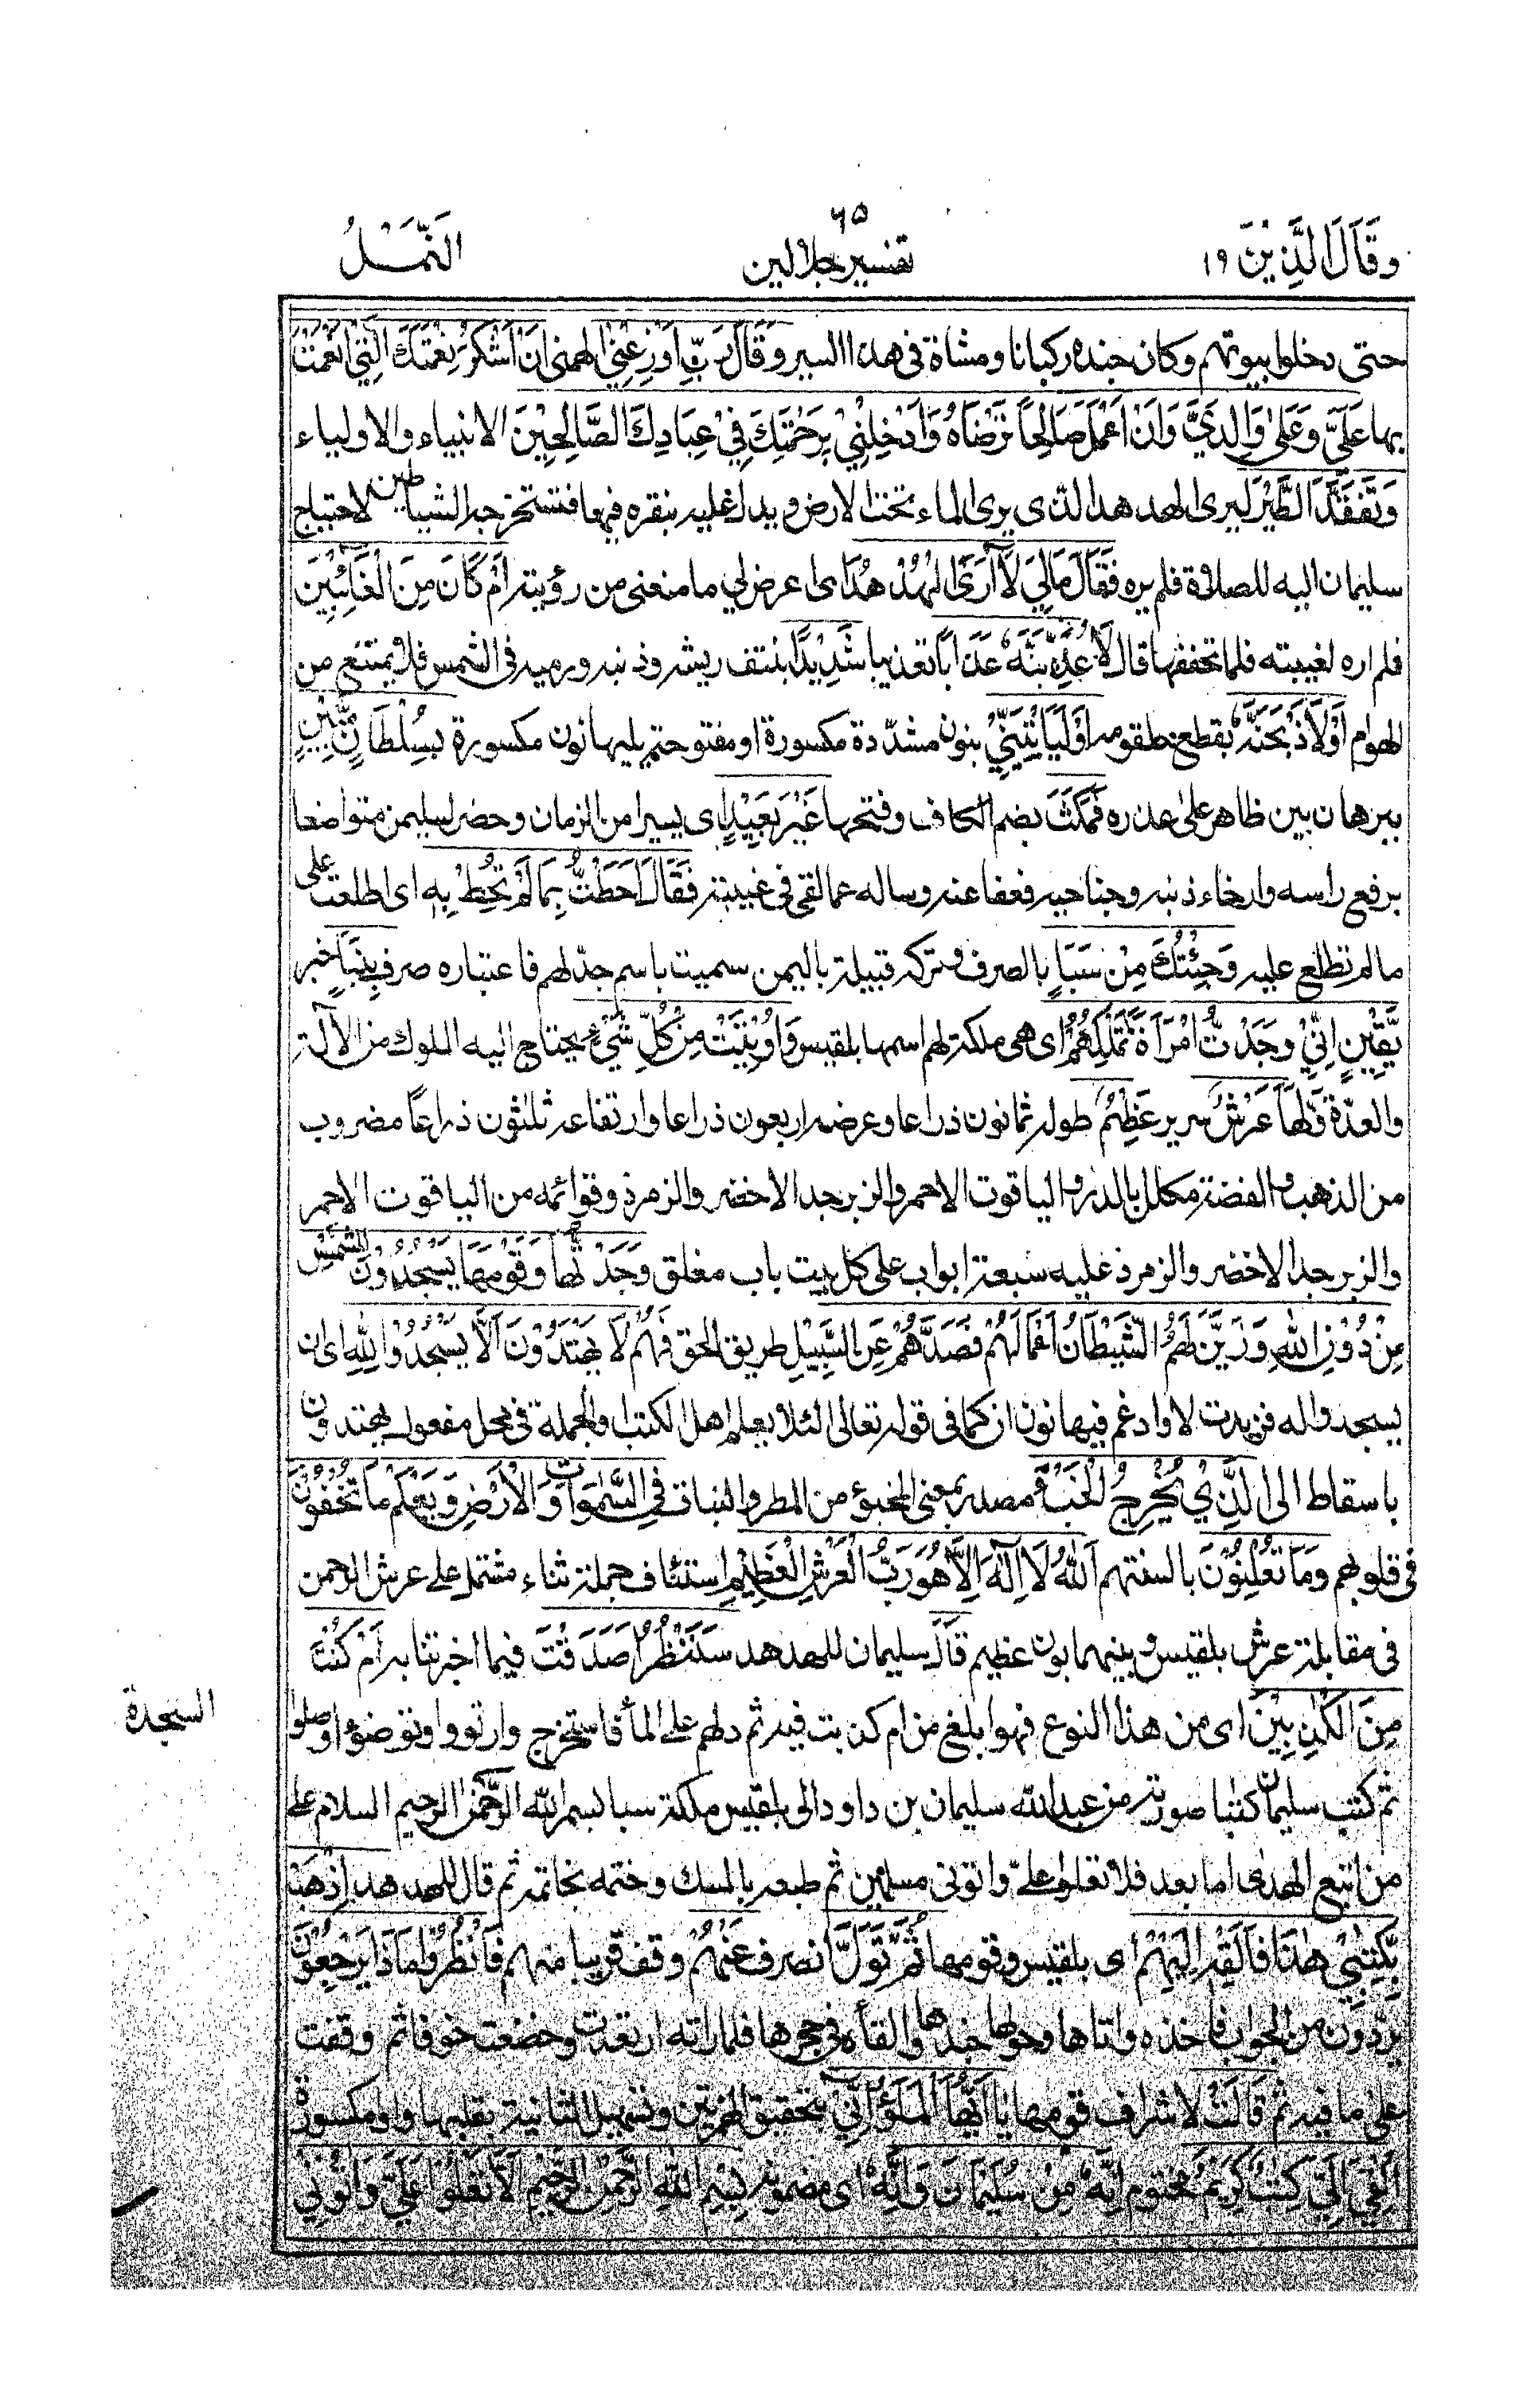 ٦٥
وَقَالَ الَّذِيْنَ ١٩
تفسير جلالين
النَّمْلُ
حتى دخلوا بيوتهم وكان جنده ركبانا ومشاة فى هذا السير وَقَالَ رَبِّ اَوْزِعْنِيْ الهمنى اَنْ اَشْكُرَ نِعْمَتَكَ الَّتِيْ اَنْعَمْتَ
بها عَلَيَّ وَعَلٰى وَالِدَيَّ وَاَنْ اَعْمَلَ صَالِحًا تَرْضَاهُ وَاَدْخِلْنِيْ بِرَحْمَتِكَ فِيْ عِبَادِكَ الصَّالِحِيْنَ الانبياء والاولياء
وَتَفَقَّدَ الطَّيْرَ ليرى الهدهد الذى يرى الماء تحت الارض ويدل عليه بنقره فيها فتستخرجه الشياطين لاحتياج
سليمان اليه للصلاة فلم يره فَقَالَ مَالِيَ لَآ اَرَى الْهُدْهُدَ اى اعرض لي ما منعنى من رؤيته اَمْ كَانَ مِنَ الْغَآئِبِيْنَ
فلم اره لغيبته فلما تحققها قال لَاُعَذِّبَنَّهٗ عَذَابًا تعذيبا شَدِيْدًا بنتف ريشه وذنبه ورميه فى الشمس فلا يمتنع من
الهوام اَوْ لَاَذْبَحَنَّهٗ بقطع حلقومه اَوْ لَيَاْتِيَنِّيْ بنون مشدّدة مكسورة او مفتوحة يليها نون مكسورة بِسُلْطَانٍ مُّبِيْنٍ
ببرهان بين ظاهر على عذره فَمَكَثَ بضم الكاف وفتحها غَيْرَ بَعِيْدٍ اى يسيرا من الزمان وحضر لسليمن متواضعا
برفع راسه وارخاء ذنبه وجناحيه فعفا عنه وساله عما لقى فى غيبته فَقَالَ اَحَطْتُّ بِمَا لَمْ تُحِطْ بِهٖ اى اطلعت على
مالم تطلع عليه وَجِئْتُكَ مِنْ سَبَاٍ بالصرف وتركه قبيلة باليمن سميت باسم جدّ لهم فاعتباره صرف بِنَبَاٍ خبر
يَّقِيْنٍ اِنِّيْ وَجَدْتُّ امْرَاَةً تَمْلِكُهُمْ اى هى ملكة لهم اسمها بلقيس وَاُوْتِيَتْ مِنْ كُلِّ شَيْءٍ يحتاج اليه الملوك من الآلة
والعدّة وَّلَهَا عَرْشٌ سرير عَظِيْمٌ طوله ثمانون ذراعا وعرضه اربعون ذراعا وارتفاعه ثلثون ذراعًا مضروب
من الذهب والفضة مكلل بالدر والياقوت الاحمر والزبرجد الاخضر والزمرذ وقوائمه من الياقوت الاحمر
والزبرجد الاخضر والزمرذ عليه سبعة ابواب على كل بيت باب مغلق وَجَدْتُّهَا وَقَوْمَهَا يَسْجُدُوْنَ لِلشَّمْسِ
مِنْ دُوْنِ اللّٰهِ وَزَيَّنَ لَهُمُ الشَّيْطَانُ اَعْمَالَهُمْ فَصَدَّهُمْ عَنِ السَّبِيْلِ طريق الحق فَهُمْ لَا يَهْتَدُوْنَ اَلَّا يَسْجُدُوْا لِلّٰهِ اى ان
يسجدوا له فزيدت لا وادغم فيها نون ان كما فى قوله تعالى لئلا يعلم اهل الكتب والجملة فى محل مفعول يهتدون
باسقاط الى الَّذِيْ يُخْرِجُ الْخَبْءَ مصدر بمعنى المخبوء من المطر والنبات فِي السَّمٰوَاتِ وَالْاَرْضِ وَيَعْلَمُ مَا تُخْفُوْنَ
فى قلوبهم وَمَا تُعْلِنُوْنَ بالسنتهم اَللّٰهُ لَا اِلٰهَ اِلَّا هُوَ رَبُّ الْعَرْشِ الْعَظِيْمِ استئناف جملة ثناء مشتمل على عرش الرحمن
فى مقابلة عرش بلقيس وبينهما بون عظيم قَالَ سليمان للهدهد سَنَنْظُرُ اَصَدَقْتَ فيما اخبرتنا به اَمْ كُنْتَ
مِنَ الْكٰذِبِيْنَ اى من هذا النوع فهو ابلغ من ام كذبت فيه ثم دلهم على الماء فاستخرج وارتووا وتوضؤا وصلوا
ثم كتب سليمان كتبا صورته من عبد الله سليمان بن داود الى بلقيس ملكة سبا بسم الله الرحمن الرحيم السلام على
من اتبع الهدى اما بعد فلا تعلوا علىّ واتونى مسلمين ثم طبعه بالمسك وختمه بخاتمه ثم قال للهدهد اِذْهَبْ
بِّكِتٰبِيْ هٰذَا فَاَلْقِهْ اِلَيْهِمْ اى بلقيس وقومها ثُمَّ تَوَلَّ انصرف عَنْهُمْ وقف قريبا منهم فَانْظُرْ مَاذَا يَرْجِعُوْنَ
يردون من الجواب فاخذه واتاها وحولها جندها والقاه فى حجرها فلما راته ارتعدت وخضعت خوفا ثم وقفت
على ما فيه ثم قَالَتْ لاشراف قومها يٰاَيُّهَا الْمَلَؤُ اِنِّيْ بتحقيق الهمزتين وتسهيل الثانية بقلبها واوا مكسورة
اُلْقِيَ اِلَيَّ كِتٰبٌ كَرِيْمٌ مختوم اِنَّهٗ مِنْ سُلَيْمَانَ وَاِنَّهٗ اى مضمونه بِسْمِ اللّٰهِ الرَّحْمٰنِ الرَّحِيْمِ اَلَّا تَعْلُوْا عَلَيَّ وَاْتُوْنِيْ
السجدة